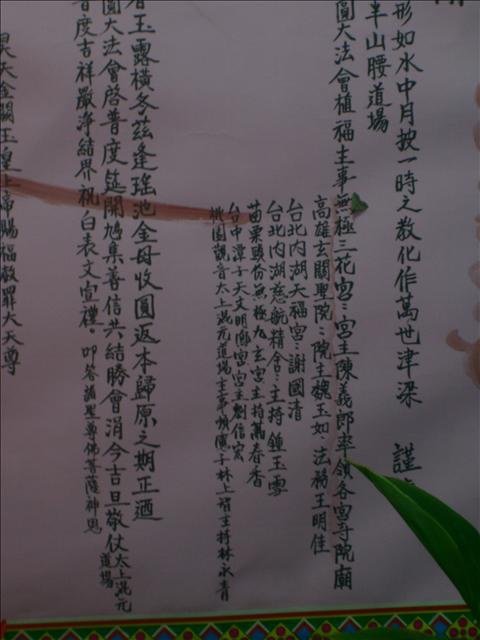 形如水中月按一時之教化作萬世津梁 謹
半山腰道場
圓大法會植福主事無極三花宮︰宮主陳義郎率領各宮寺院廟
高雄玄關聖院︰院主魏玉如、法務王明佳
台北內湖天福宮︰謝國清
台北內湖慈航精舍︰主持鍾玉雪
苗栗頭份無極九玄宮主持萬春香
台中潭子天文明 宮宮主劉信宏
桃園觀音太上混元道場主事 林上 主持林永青
玉露橫冬茲逢瑤池金母收圓返本歸原之期正迺
圓大法會啓普度筵開鳩集善信共結勝會涓今吉旦敬仗太上混元道場
普度吉祥嚴淨結界祝白表文宣禮。叩答諸聖尊佛菩薩神恩
昊天金闕玉皇上帝賜福赦罪大天尊